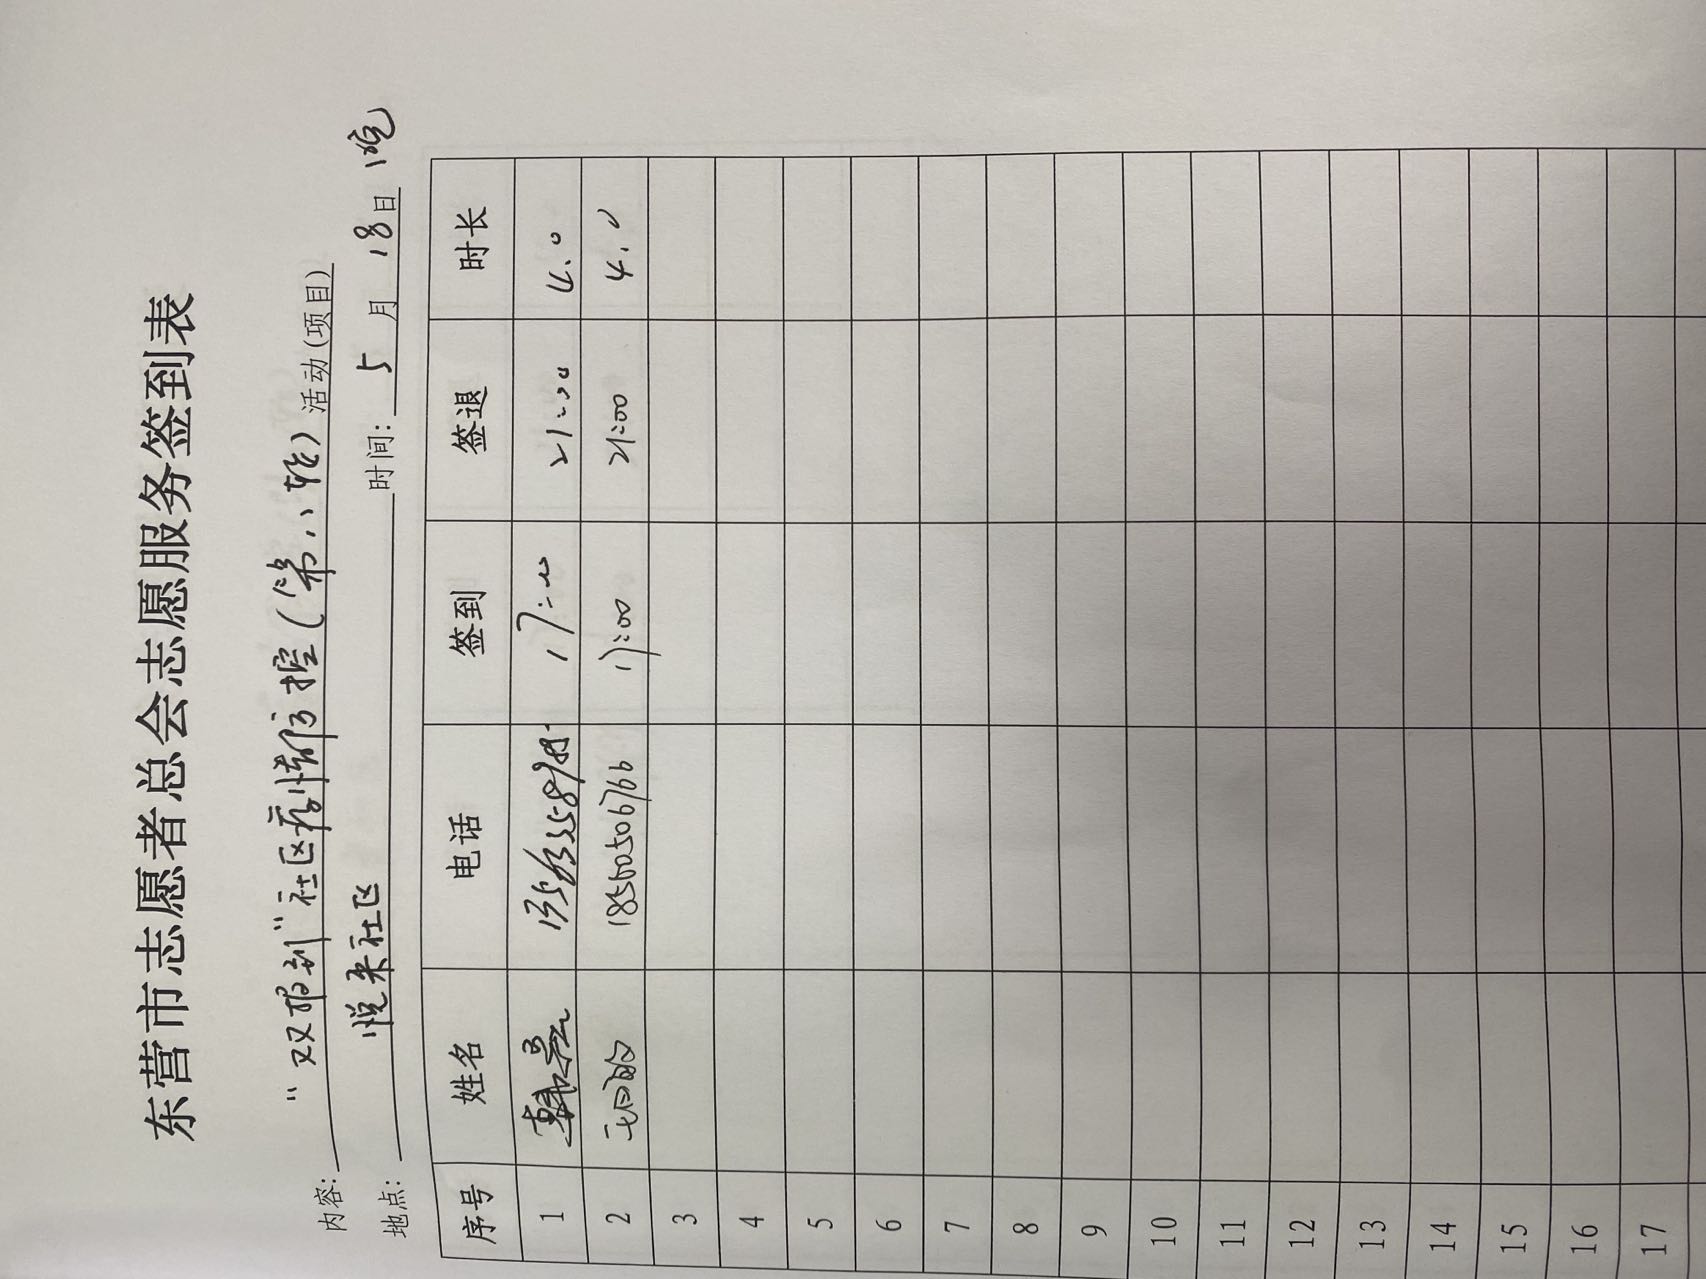 东营市志愿者总会志愿服务签到表
内容: “双报到”社区疫情防控(第八轮) 活动(项目)
地点: 悦来社区 时间: 5 月 18 日 晚
序号 姓名 电话 签到 签退 时长
1 17:00 21:00 4.0
2 18560506766 17:00 21:00 4.0
3
4
5
6
7
8
9
10
11
12
13
14
15
16
17